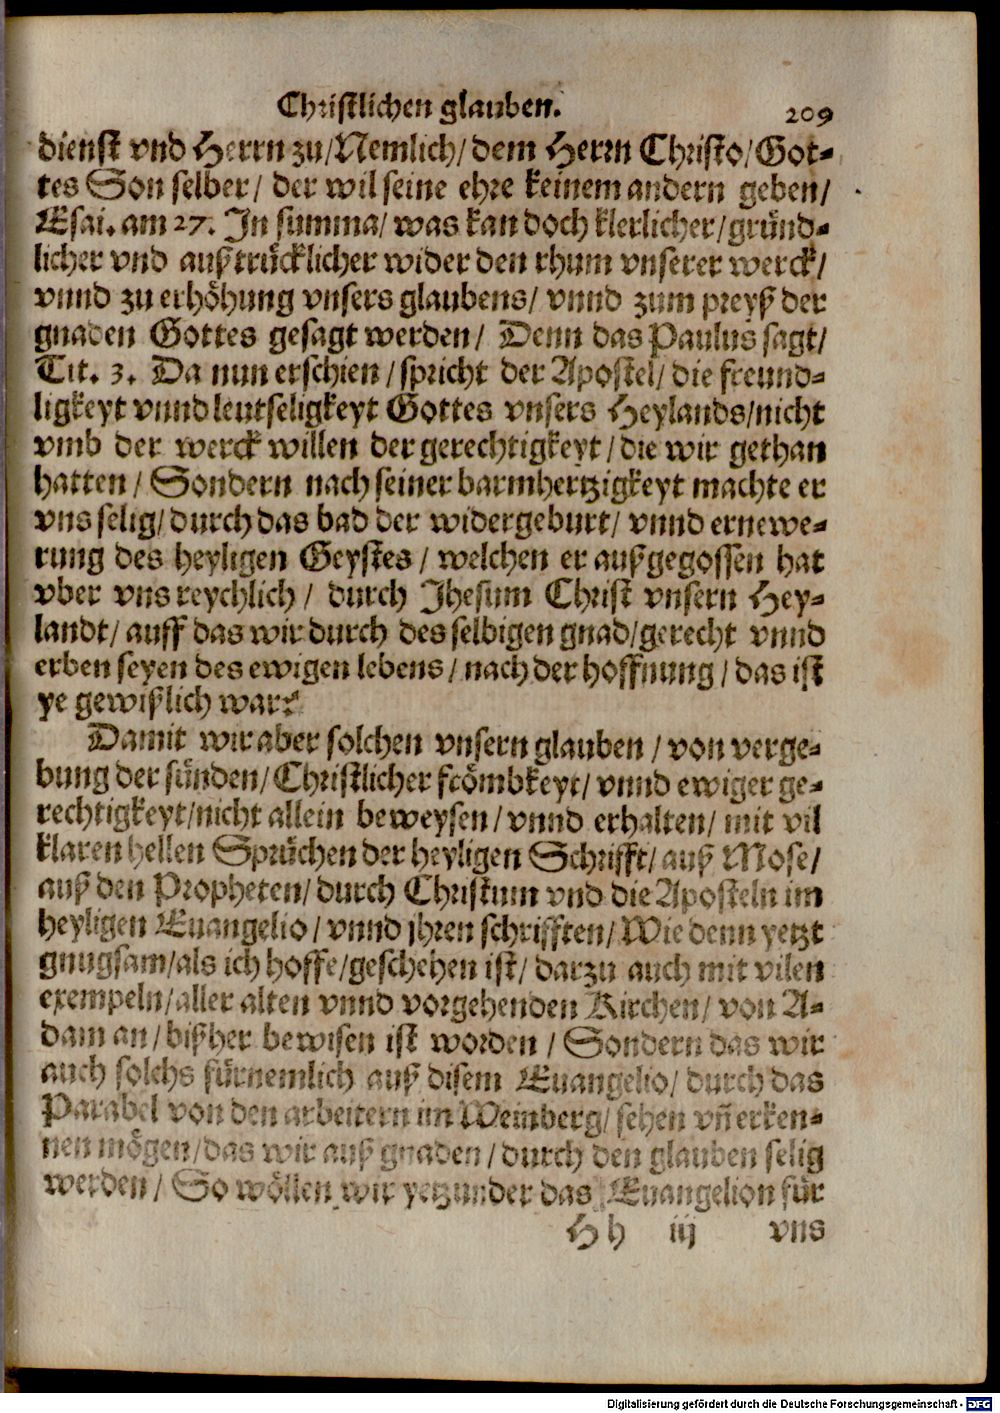 Christlichen glauben. 209
dienst vnd Herrn zu/Nemlich/dem Herrn Christo/Got-
tes Son selber/ der wil seine ehre keinem andern geben/
Esai. am 27. In summa/ was kan doch klerlicher/gründ-
licher vnd außtrücklicher wider den rhum vnserer werck/
vnnd zu erhöhung vnsers glaubens/ vnnd zum preyß der
gnaden Gottes gesagt werden/ Denn das Paulus sagt/
Tit. 3. Da nun erschien/spricht der Apostel/die freund-
ligkeyt vnnd leutseligkeyt Gottes vnsers Heylands/nicht
vmb der werck willen der gerechtigkeyt/die wir gethan
hatten/ Sondern nach seiner barmhertzigkeyt machte er
vns selig/durch das bad der widergeburt/ vnnd ernewe-
rung des heyligen Geystes/ welchen er außgegossen hat
vber vns reychlich/ durch Jhesum Christ vnsern Hey-
landt/auff das wir durch des selbigen gnad/gerecht vnnd
erben seyen des ewigen lebens/nach der hoffnung/das ist
ye gewißlich war.
Damit wir aber solchen vnsern glauben/von verge-
bung der sünden/Christlicher frömbkeyt/vnnd ewiger ge-
rechtigkeyt/nicht allein beweysen/vnnd erhalten/mit vil
klaren hellen Sprüchen der heyligen Schrifft/auß Mose/
auß den Propheten/durch Christum vnd die Aposteln im
heyligen Euangelio/vnnd jhren schrifften/Wie denn yetzt
gnugsam/als ich hoffe/geschehen ist/darzu auch mit vilen
exempeln/aller alten vnnd vorgehenden Kirchen/von A-
dam an/bißher bewisen ist worden/Sondern das wir
auch solchs fürnemlich auß disem Euangelio/durch das
Parabel von den arbeitern im Weinberg/sehen vñ erken-
nen mögen/das wir auß gnaden/durch den glauben selig
werden/ So wöllen wir yetzunder das Euangelion für
Hh iij vns
Digitalisierung gefördert durch die Deutsche Forschungsgemeinschaft - DFG